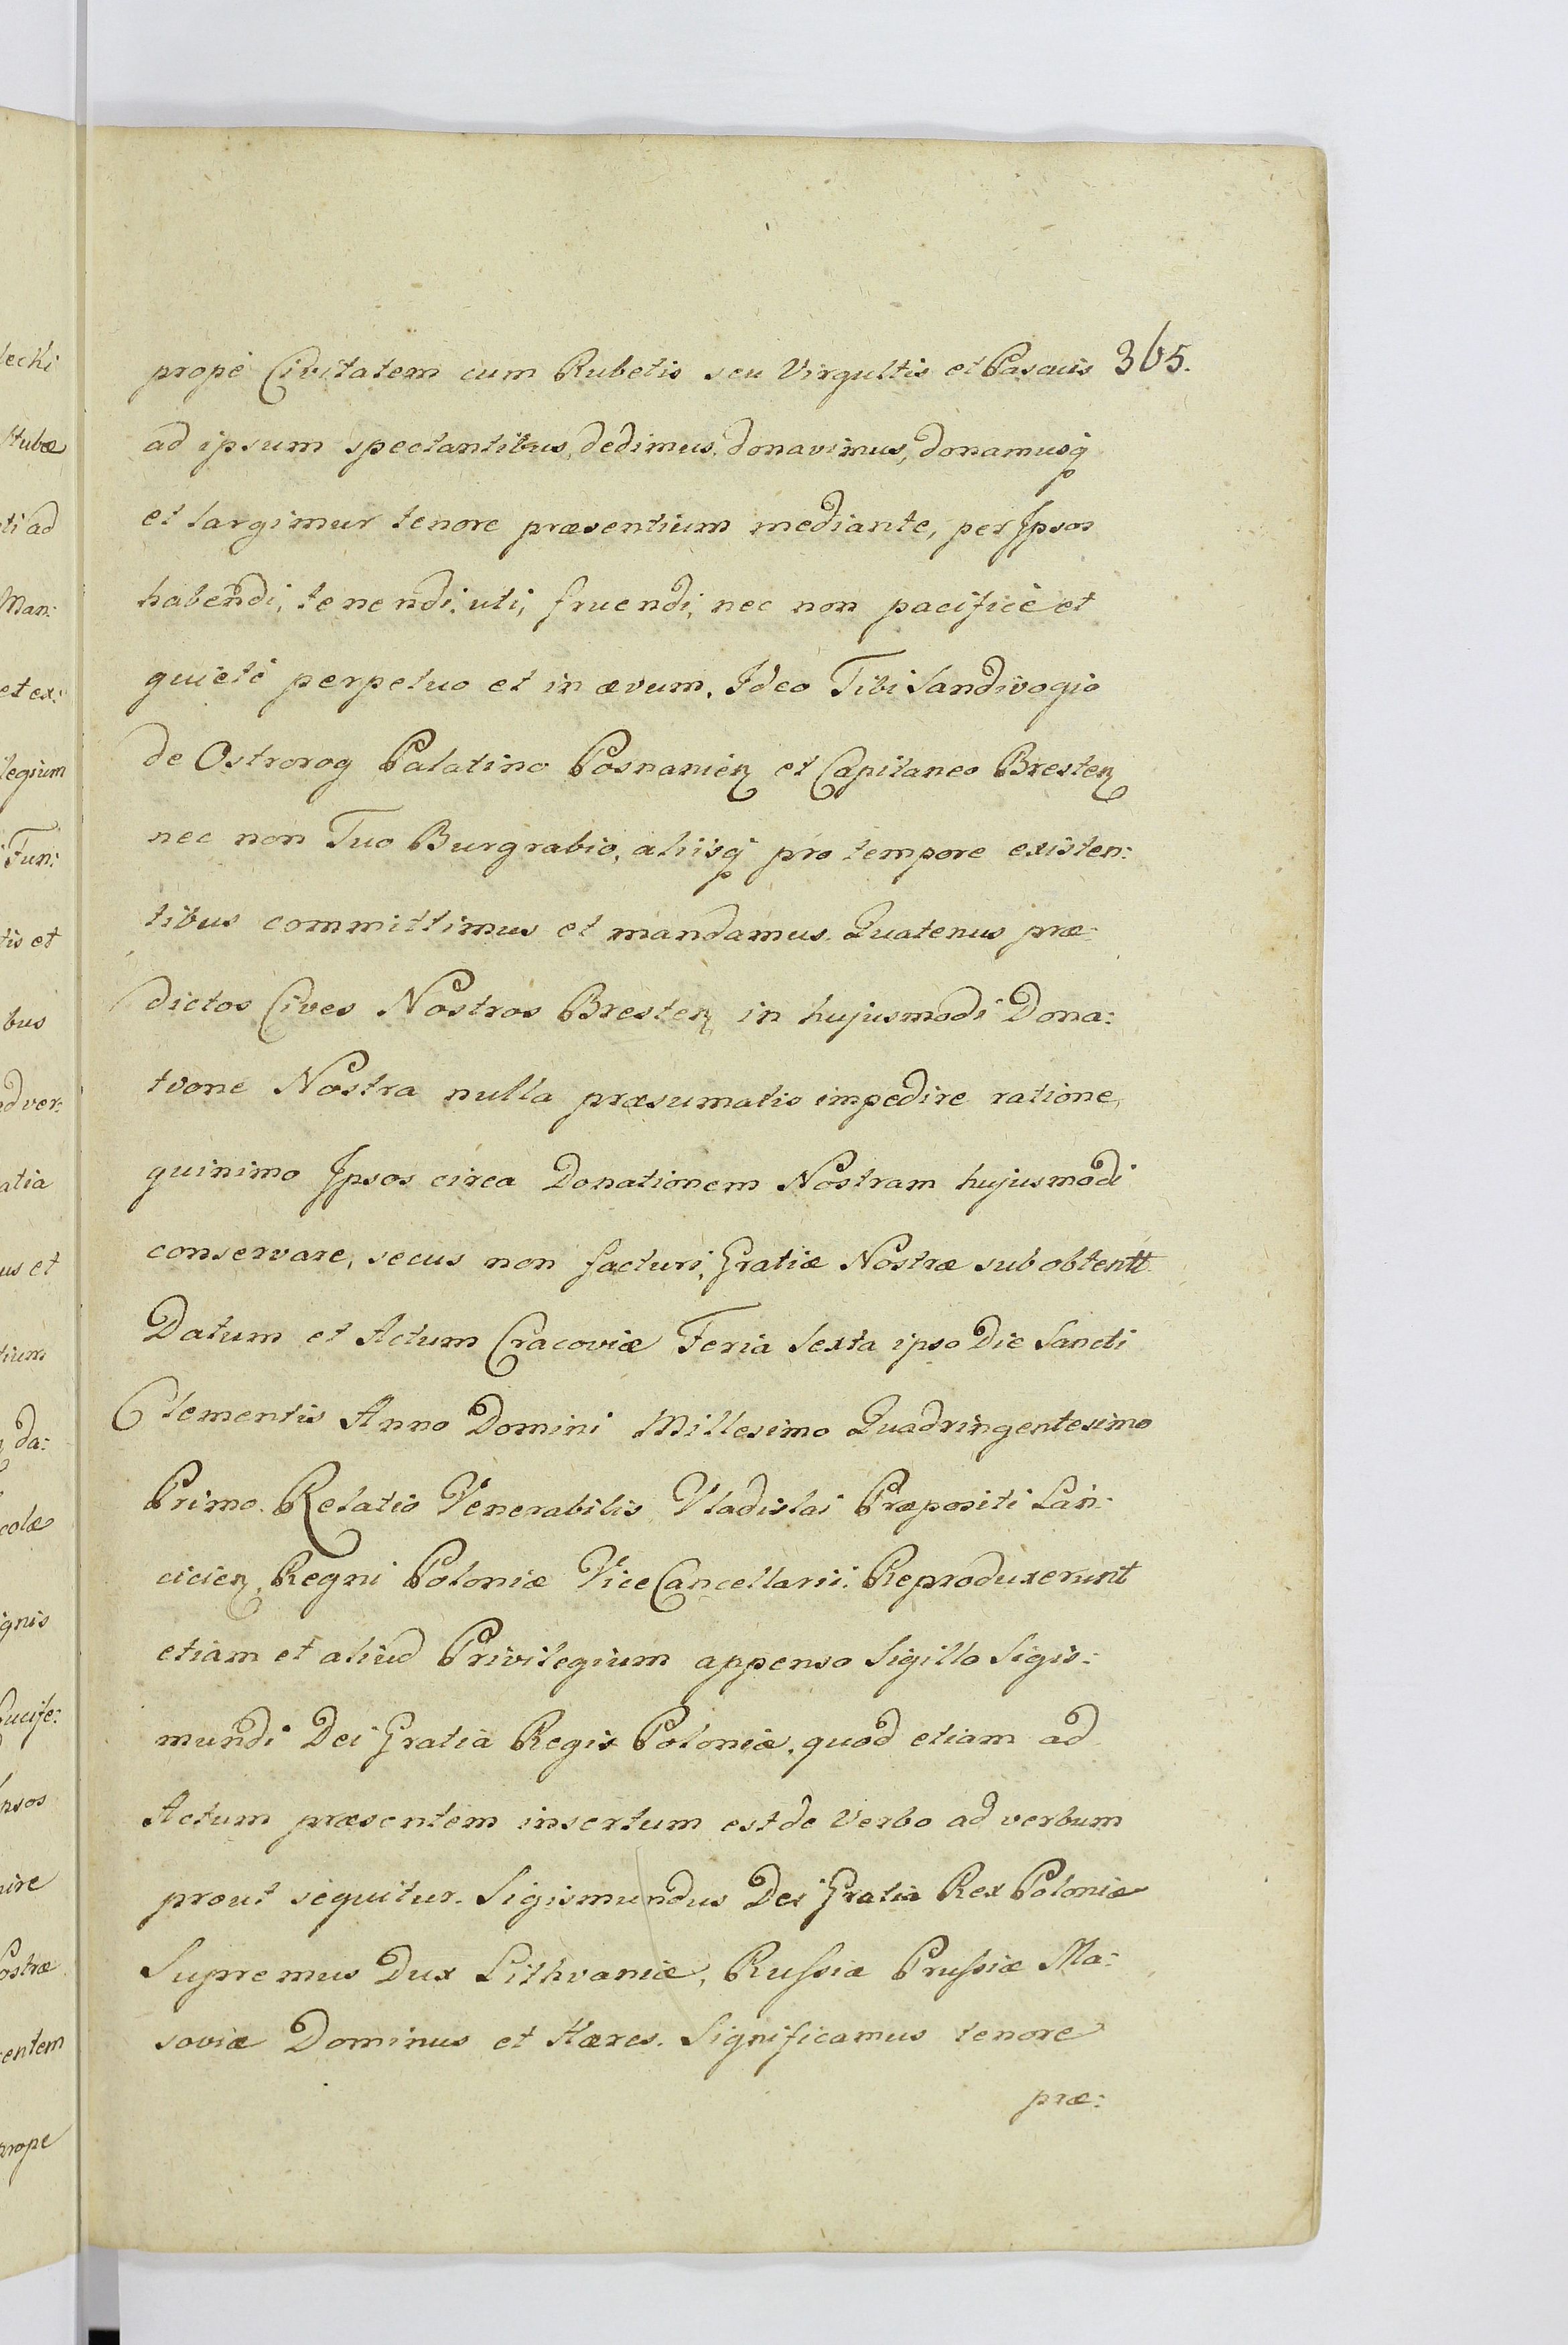 prope Civitatem cum Rubetis seu Virgultis et Pascuis 365.
ad ipsum spectantibus, dedimus, donavimus, donamusq
et largimur tenore præsentium mediante, per Ipsos
habendi, tenendi, uti, fruendi, nec non pacifice et
quiete perpetuo et in ævum. Ideo Tibi Sandivogio
de Ostrorog Palatino Posnanien et Capitaneo Bresten
nec non Tuo Burgrabio, aliisq pro tempore existen:
tibus committimus et mandamus. Quatenus præ:
dictos Cives Nostros Bresten in hujusmodi Dona:
tione Nostra nulla præsumatis impedire ratione,
quinimo Ipsos circa Donationem Nostram hujusmodi
conservare, secus non facturi, Gratiæ Nostræ sub obtentu
Datum et Actum Cracoviæ Feria Sexta ipso Die Sancti
Clementis Anno Domini Millesimo Quadringentesimo
Primo. Relatio Venerabilis Vladislai Præpositi Lan:
cicien Regni Poloniæ Vice Cancellarii. Reproduxerunt
etiam et aliud Privilegium appenso Sigillo Sigis:
mundi Dei Gratia Regis Poloniæ, quod etiam ad
Actum præsentem insertum est de Verbo ad verbum
prout sequitur. Sigismundus Dei Gratia Rex Poloniæ
Supremus Dux Lithvaniæ, Russiæ Prussiæ Ma:
soviæ Dominus et Hæres. Significamus tenore
præ: